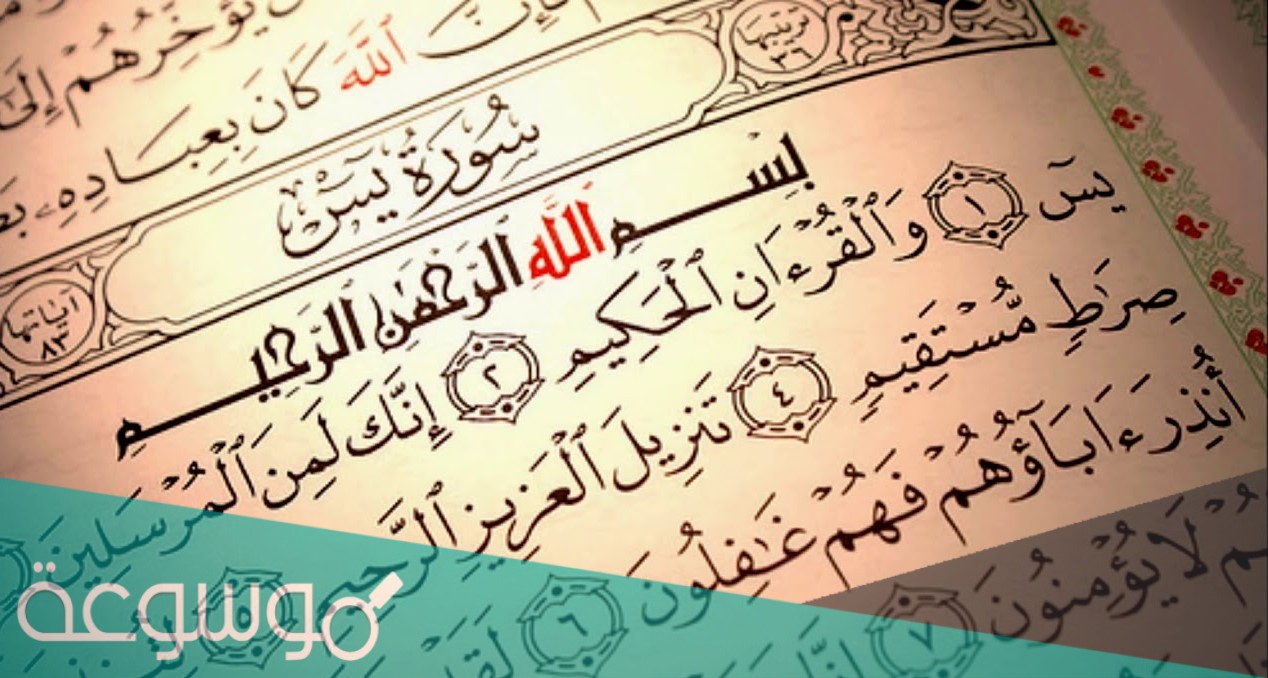 يُؤَخِّرُهُمْ إِلَىٰ
فَإِنَّ ٱللَّهَ كَانَ بِعِبَادِهِۦ
ترتيبها ٣٦
سُورَةُ يسٓ
آياتها ٨٣
بِسْمِ ٱللَّهِ ٱلرَّحْمَٰنِ ٱلرَّحِيمِ
يسٓ ١ وَٱلْقُرْءَانِ ٱلْحَكِيمِ ٢ إِنَّكَ لَمِنَ ٱلْمُرْسَلِينَ
صِرَٰطٍ مُّسْتَقِيمٍ ٤ تَنزِيلَ ٱلْعَزِيزِ ٱلرَّحِيمِ ٥
أُنذِرَ ءَابَآؤُهُمْ فَهُمْ غَٰفِلُونَ ٦ لَقَدْ
لَا يُؤْمِنُونَ ٧ إِنَّا
موسوعة